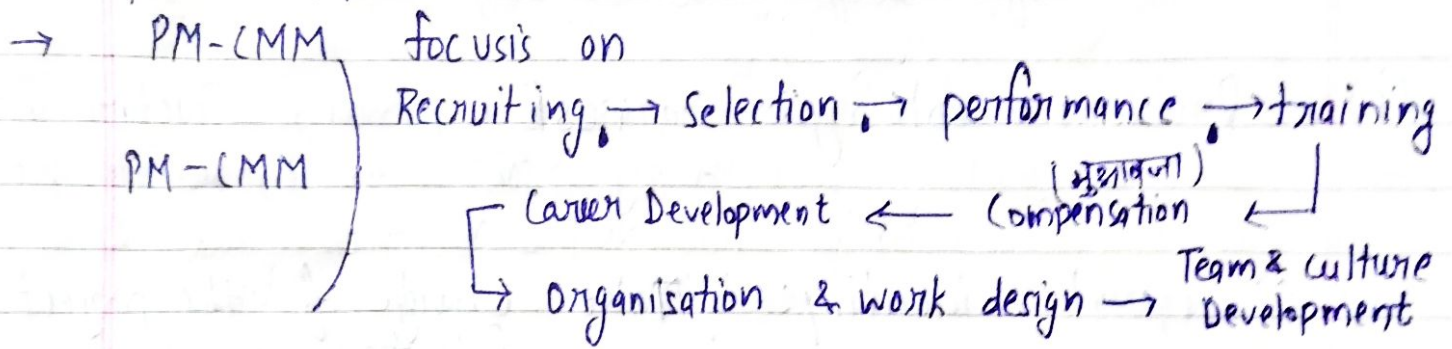 → PM-CMM focusis on
Recruiting. → Selection. → performance. → training
PM-CMM
(मुआवजा)
Career Development ← Compensation ←
→ Organisation & work design → Team & culture Development